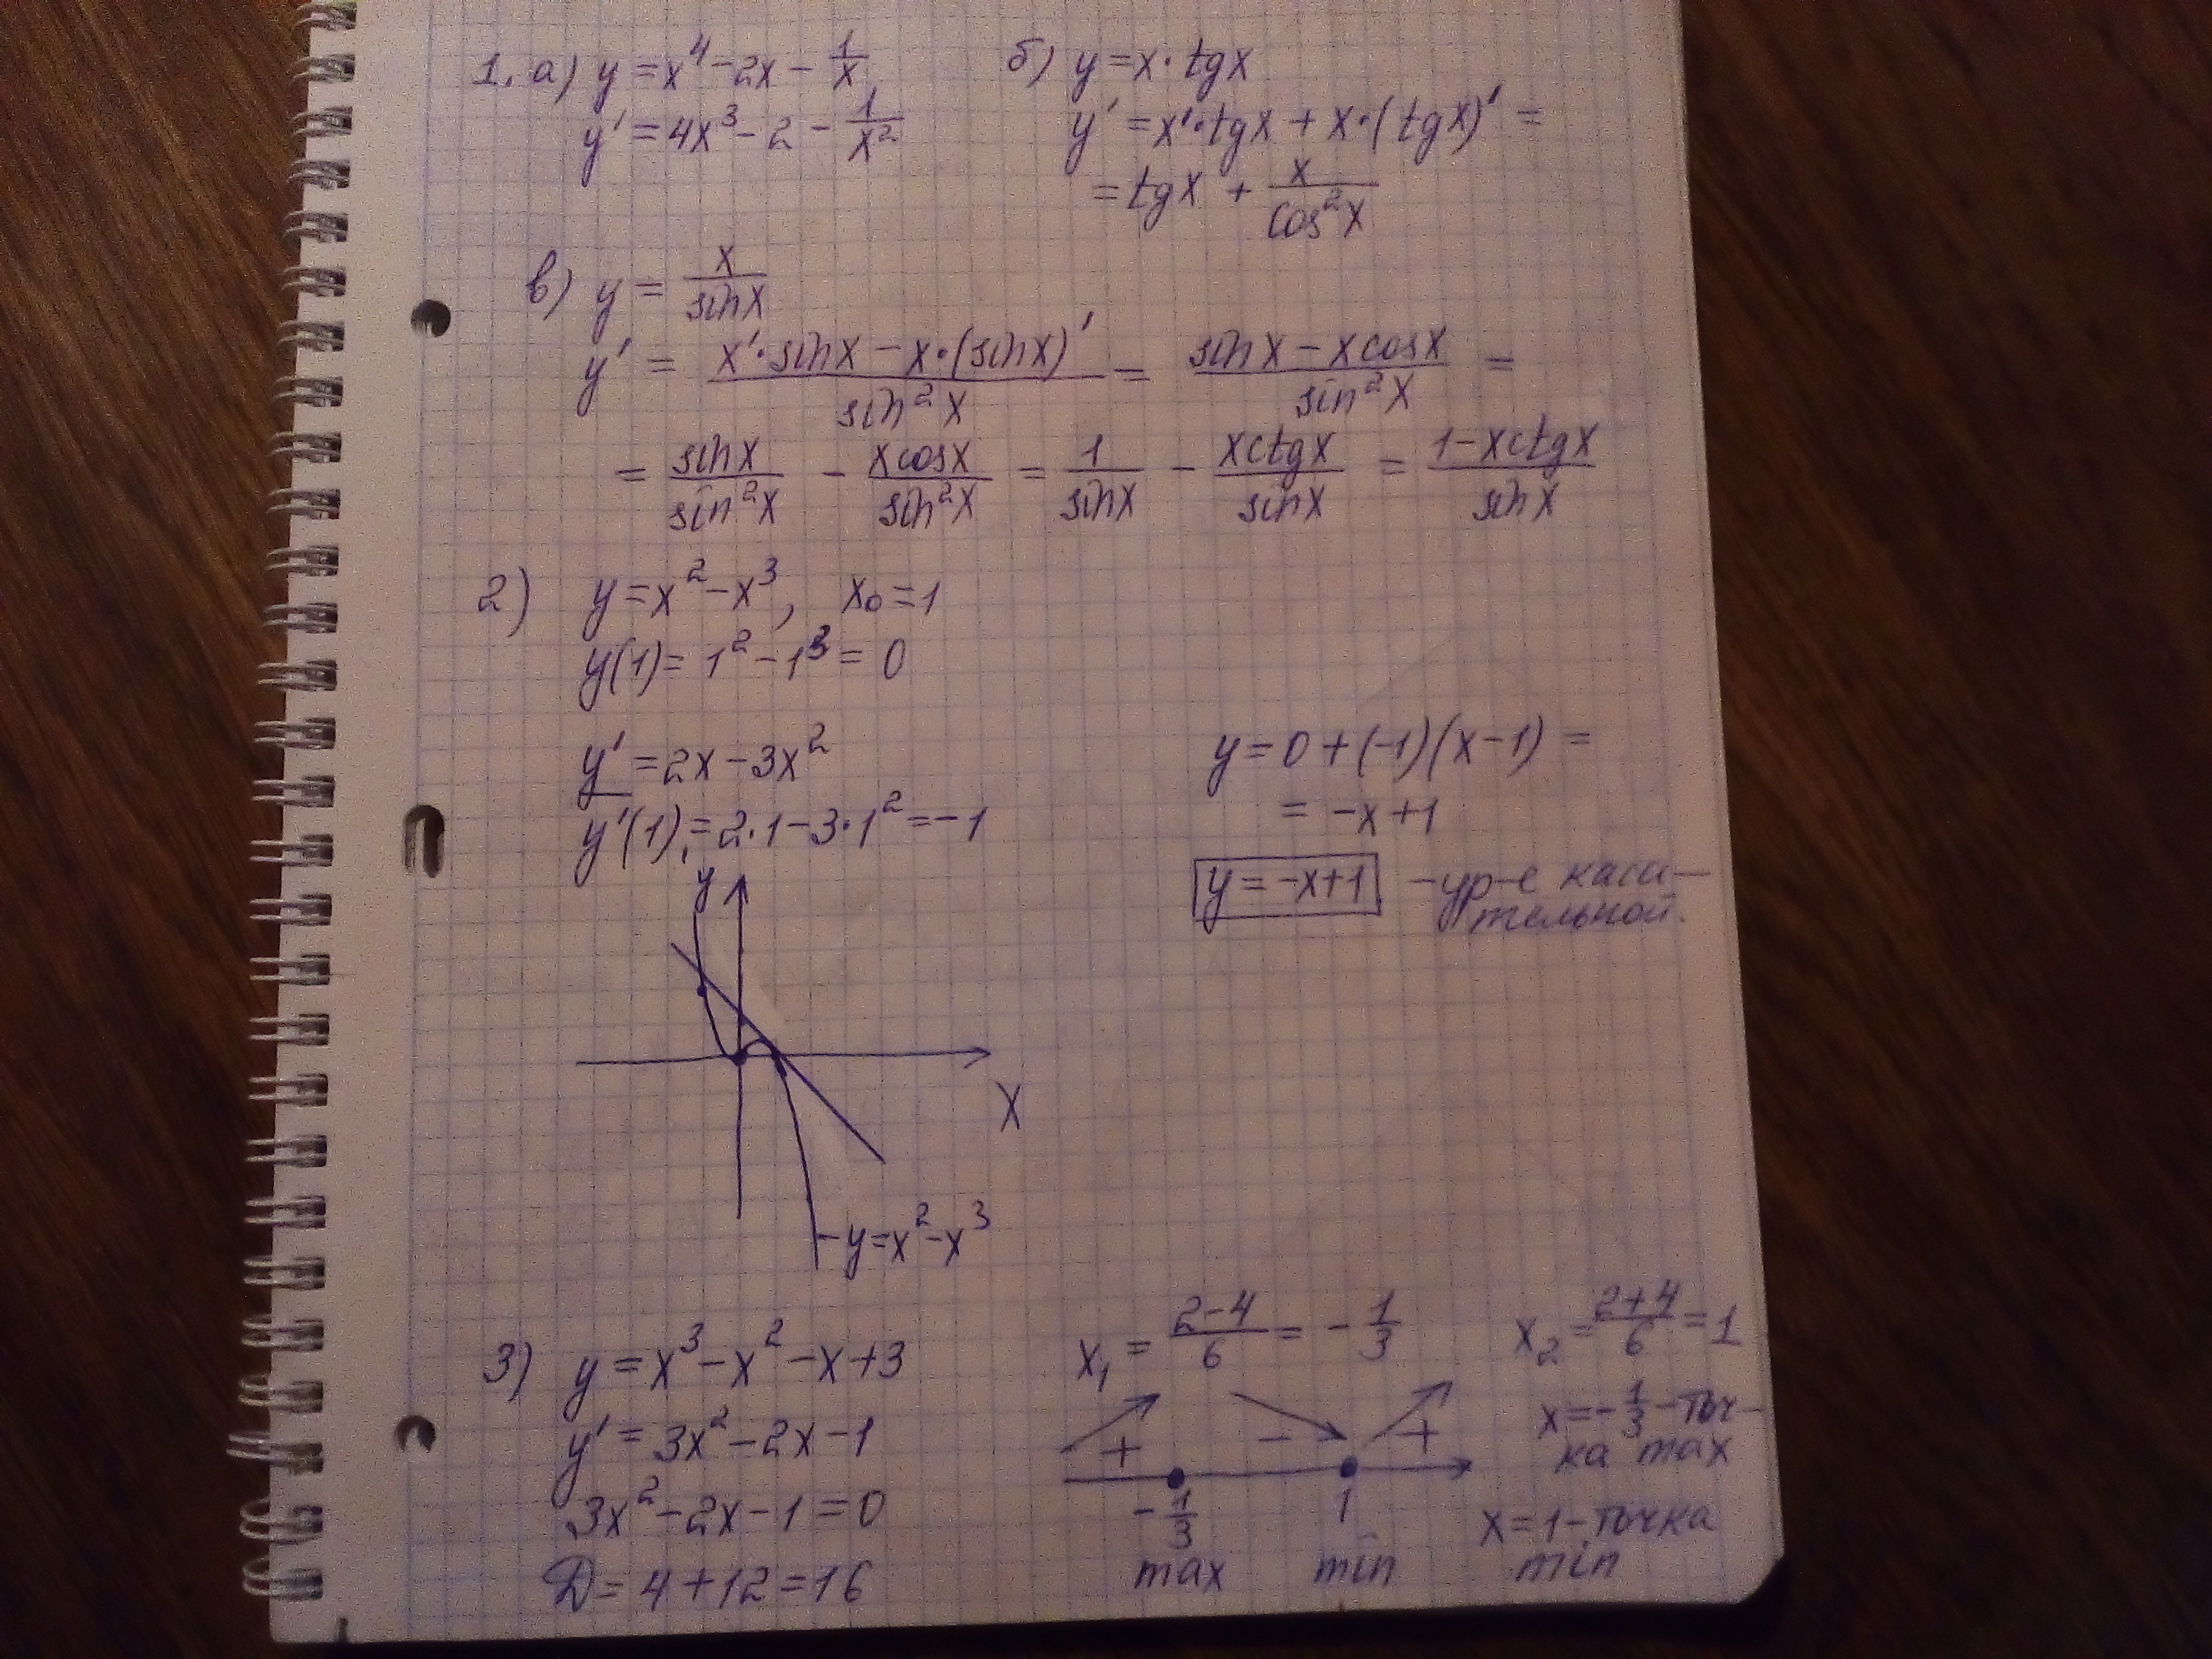 1. а) y = x⁴ - 2x - 1/x
y' = 4x³ - 2 - 1/x²
б) y = x · tgx
y' = x' · tgx + x · (tgx)' =
= tgx + x/cos²x
в) y = x/sinx
y' = (x' · sinx - x · (sinx)')/sin²x = (sinx - xcosx)/sin²x =
= sinx/sin²x - xcosx/sin²x = 1/sinx - xctgx/sinx = (1 - xctgx)/sinx
2) y = x² - x³, x₀ = 1
y(1) = 1² - 1³ = 0
y' = 2x - 3x²
y'(1) = 2·1 - 3·1² = -1
y = 0 + (-1)(x - 1) =
= -x + 1
y = -x+1 - ур-е каса-
тельной.
y
x
y = x² - x³
3) y = x³ - x² - x + 3
y' = 3x² - 2x - 1
3x² - 2x - 1 = 0
D = 4 + 12 = 16
x₁ = (2-4)/6 = -1/3
x₂ = (2+4)/6 = 1
+ - +
-1/3 1
max min
x = -1/3 - точ-
ка max
x = 1 - точка
min